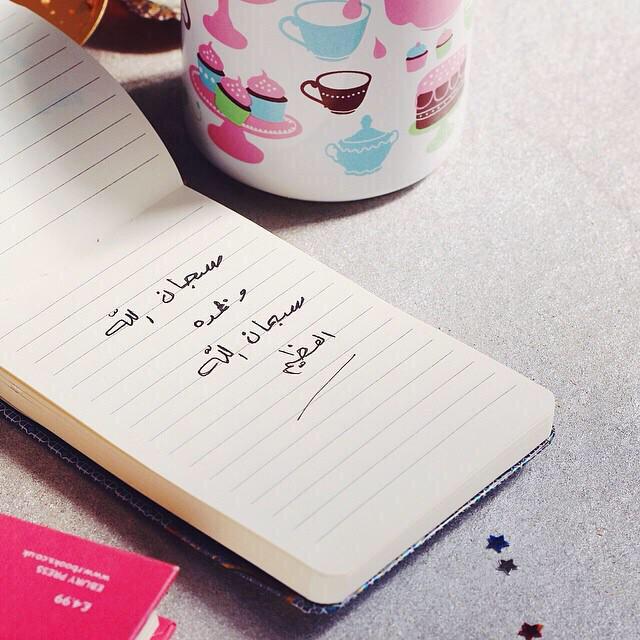 سبحان الله
وبحمده
سبحان الله
العظيم
EBURY PRESS
www.rbooks.co.uk
£4.99